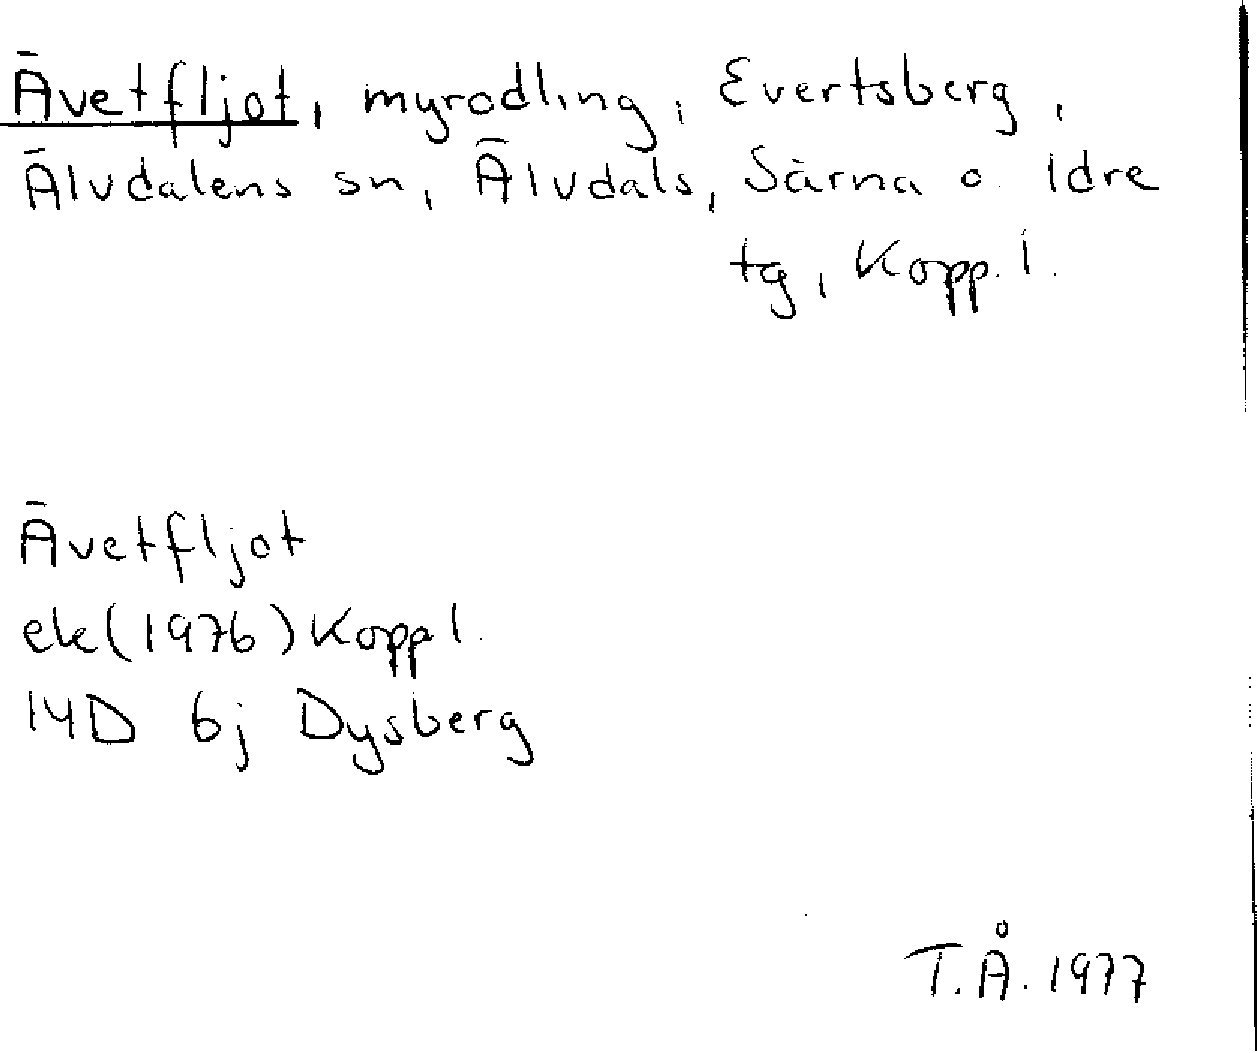 Ävetfljot, myrodling, Evertsberg,
Älvdalens sn, Älvdals, Särna o. Idre
tg, Kopp. l.
Ävetfljot
ek (1976) Kopp l.
14D 6j Dysberg
T.Å. 1977